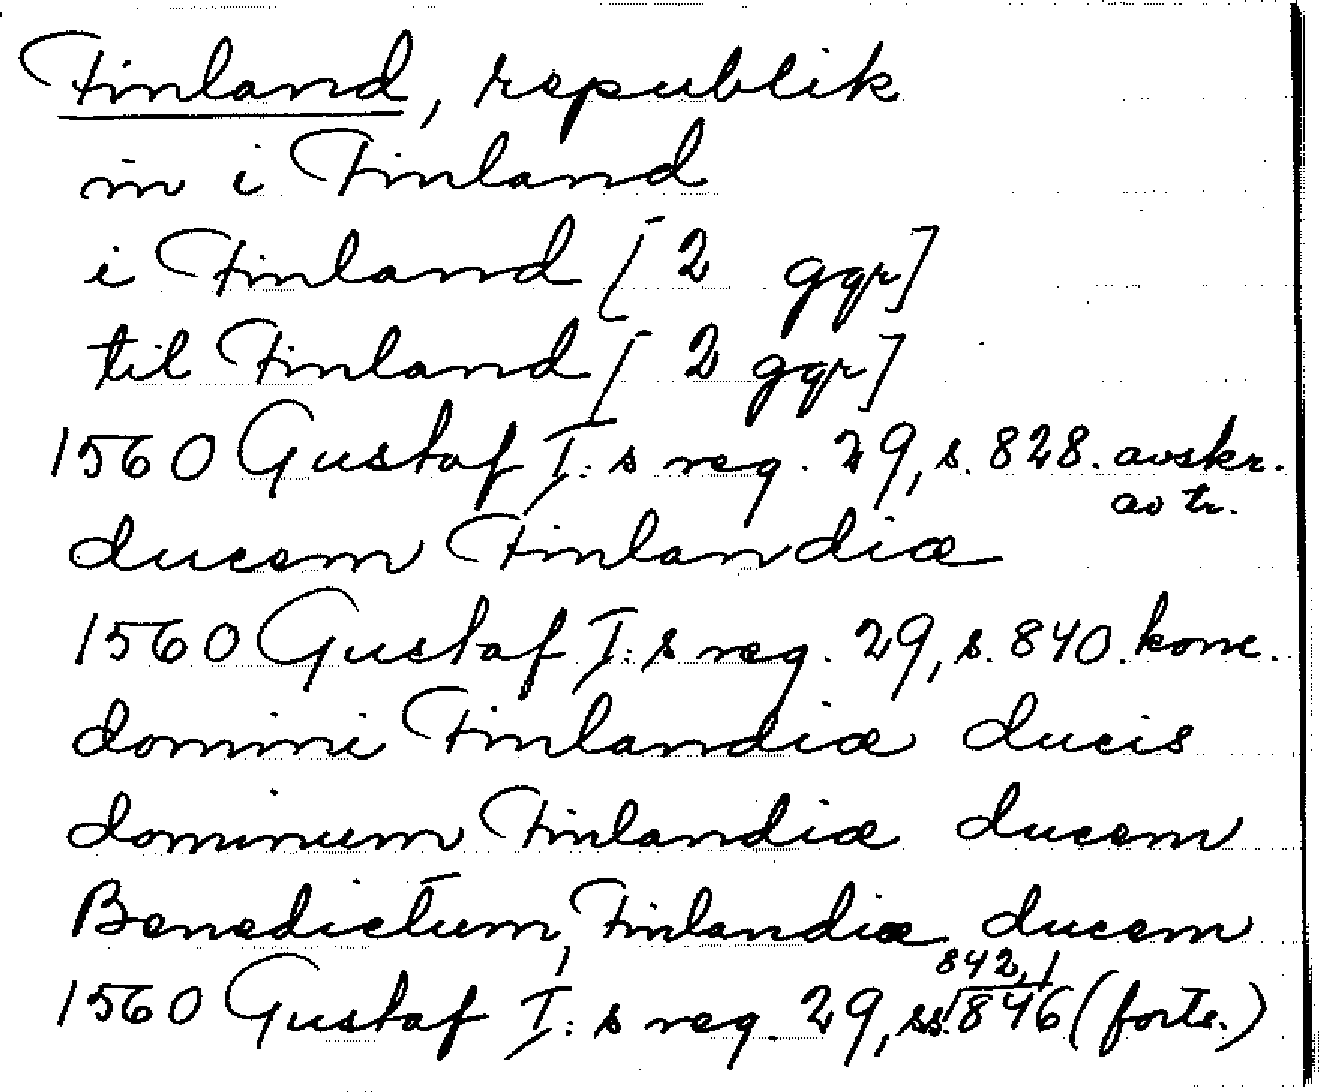 Finland, republik
in i Finland
i Finland [2 ggr]
til Finland [2 ggr]
1560 Gustaf I:s reg. 29, s. 828. avskr.
av tr.
ducem Finlandiæ
1560 Gustaf I:s reg. 29, s. 840. konc.
domini Finlandiæ ducis
dominum Finlandiæ ducem
Benedictum, Finlandiæ ducem
842,
1560 Gustaf I:s reg. 29, ss. 846 (forts.)